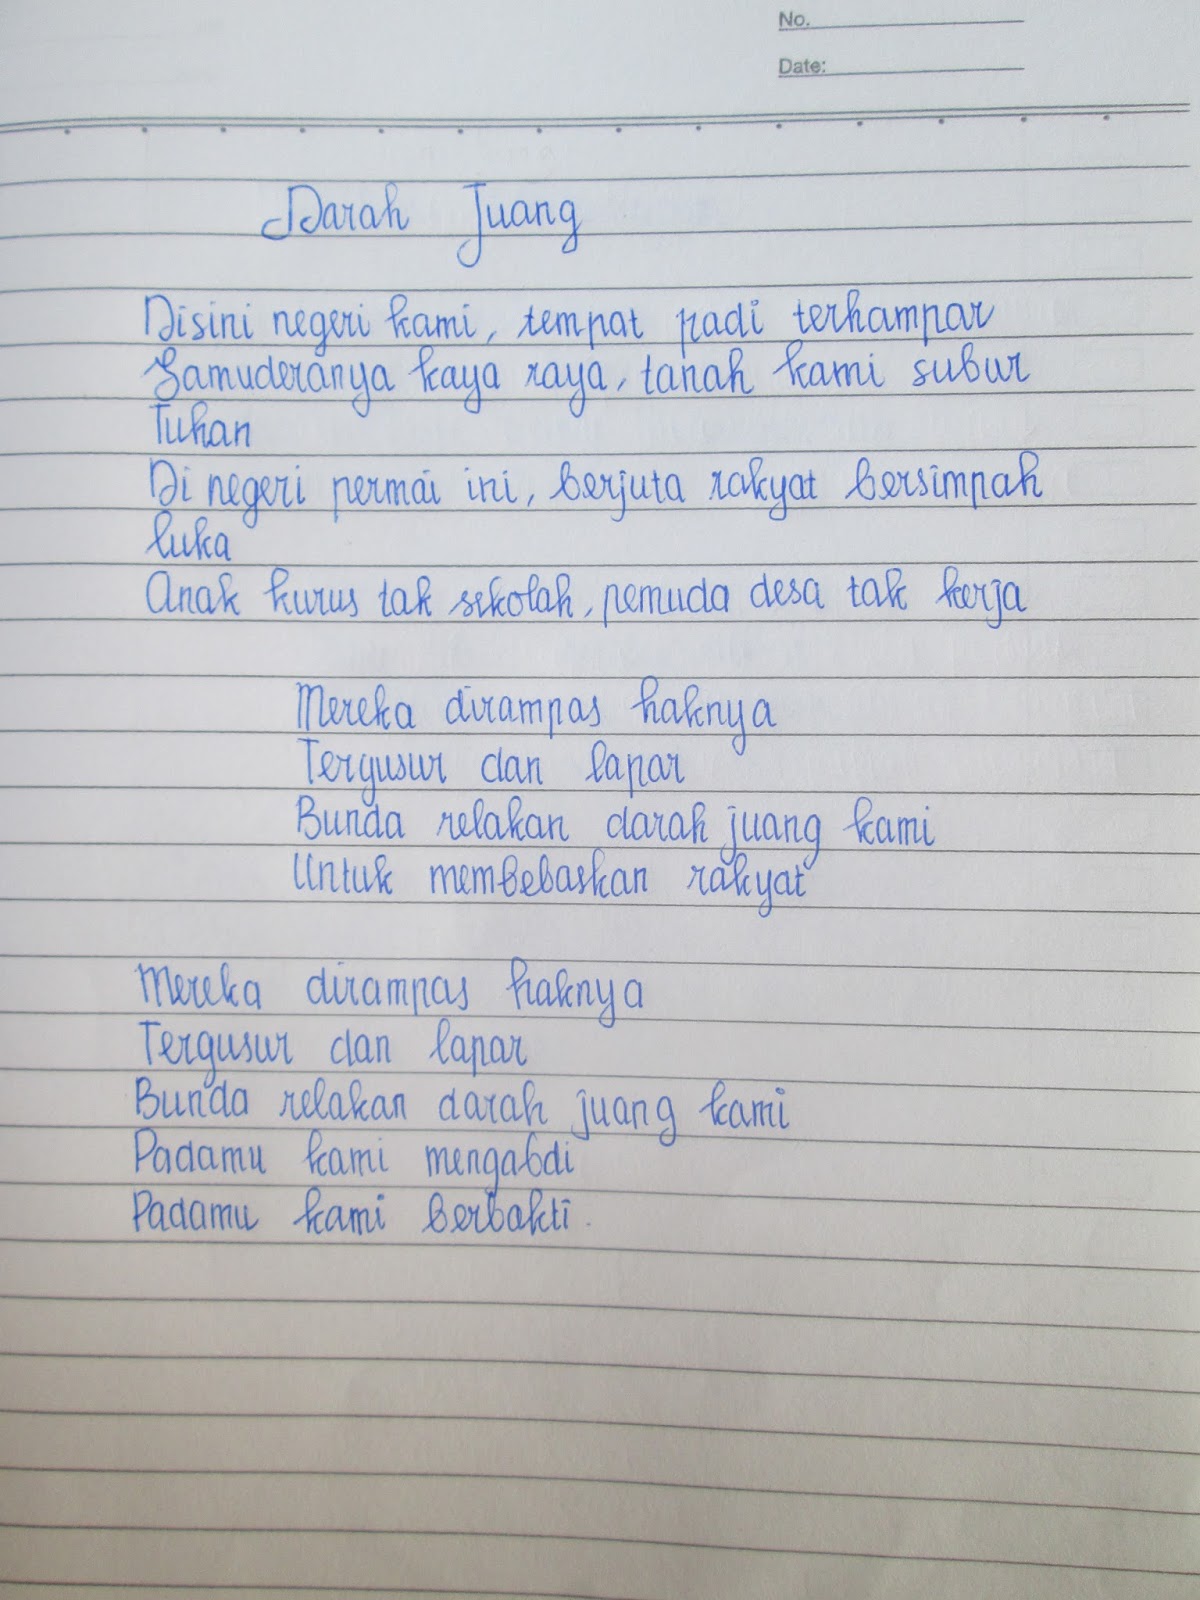 No.
Date:
Darah Juang
Disini negeri kami, tempat padi terhampar
Samuderanya kaya raya, tanah kami subur
Tuhan
Di negeri permai ini, berjuta rakyat bersimpah
luka
Anak kurus tak sekolah, pemuda desa tak kerja
Mereka dirampas haknya
Tergusur dan lapar
Bunda relakan darah juang kami
Untuk membebaskan rakyat
Mereka dirampas haknya
Tergusur dan lapar
Bunda relakan darah juang kami
Padamu kami mengabdi
Padamu kami berbakti.